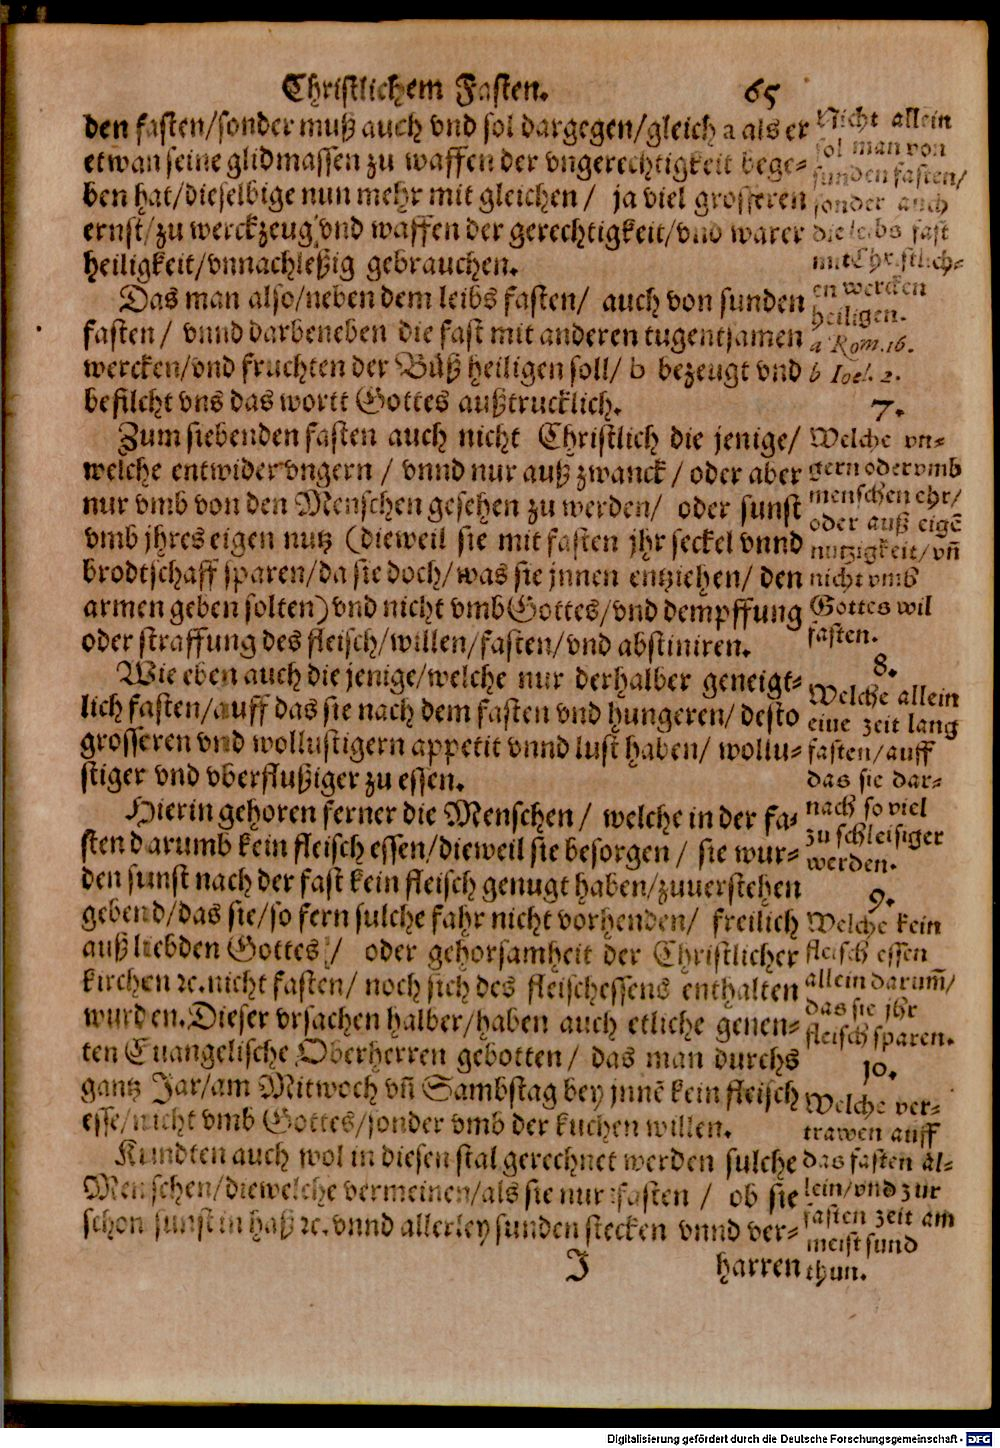 Christlichem Fasten. 65
den fasten/sonder muß auch vnd sol dargegen/gleich a als er
etwan seine glidmassen zu waffen der vngerechtigkeit bege-
ben hat/dieselbige nun mehr mit gleichen/ ja viel grosseren
ernst/zu werckzeug vnd waffen der gerechtigkeit/vnd warer
heiligkeit/vnnachleßig gebrauchen.
Das man also/neben dem leibs fasten/ auch von sunden
fasten/ vnnd darbeneben die fast mit anderen tugentsamen
wercken/vnd fruchten der Buß heiligen soll/ b bezeugt vnd
befilcht vns das wortt Gottes außtrucklich.
Zum siebenden fasten auch nicht Christlich die jenige/
welche entwider vngern/ vnnd nur auß zwanck/ oder aber
nur vmb von den Menschen gesehen zu werden/ oder sunst
vmb jhres eigen nutz (dieweil sie mit fasten jhr seckel vnnd
brodtschaff sparen/da sie doch/was sie jnnen entziehen/ den
armen geben solten) vnd nicht vmb Gottes/vnd dempffung
oder straffung des fleisch/willen/fasten/vnd abstiniren.
Wie eben auch die jenige/welche nur derhalber geneigt-
lich fasten/auff das sie nach dem fasten vnd hungeren/ desto
grosseren vnd wollustigern appetit vnnd lust haben/ wollu-
stiger vnd vberflußiger zu essen.
Hierin gehoren ferner die Menschen/ welche in der fa-
sten darumb kein fleisch essen/dieweil sie besorgen/ sie wur-
den sunst nach der fast kein fleisch genugt haben/zuuerstehen
gebend/das sie/so fern sulche fahr nicht vorhenden/ freilich
auß liebden Gottes/ oder gehorsamheit der Christlicher
kirchen ꝛc. nicht fasten/ noch sich des fleischessens enthalten
wurden. Dieser vrsachen halber/haben auch etliche genen-
ten Euangelische Oberherren gebotten/ das man durchs
gantz Jar/am Mitwoch vñ Sambstag bey jnnē kein fleisch
esse/nicht vmb Gottes/sonder vmb der kuchen willen.
Kundten auch wol in diesen stal gerechnet werden sulche
Menschen/diewelche vermeinen/als sie nur fasten/ ob sie
schon sunst in haß ꝛc. vnnd allerley sunden stecken vnnd ver-
J harren
Nicht allein
sol man von
sunden fasten/
sonder auch
die leibs fast
mit Christlich-
en wercken
heiligen.
a Rom. 16.
b Ioel. 2.
7.
Welche vn-
gern oder vmb
menschen ehr/
oder auß eigē
nutzigkeit/vñ
nicht vmb
Gottes wil
fasten.
8.
Welche allein
eine zeit lang
fasten/auff
das sie dar-
nach so viel
zu schleisiger
werden.
9.
Welche kein
fleisch essen
allein darum̄/
das sie jhr
fleisch sparen.
10.
Welche ver-
trawen auff
das fasten al-
lein/vnd zur
fasten zeit am
meist sund
thun.
Digitalisierung gefördert durch die Deutsche Forschungsgemeinschaft - DFG